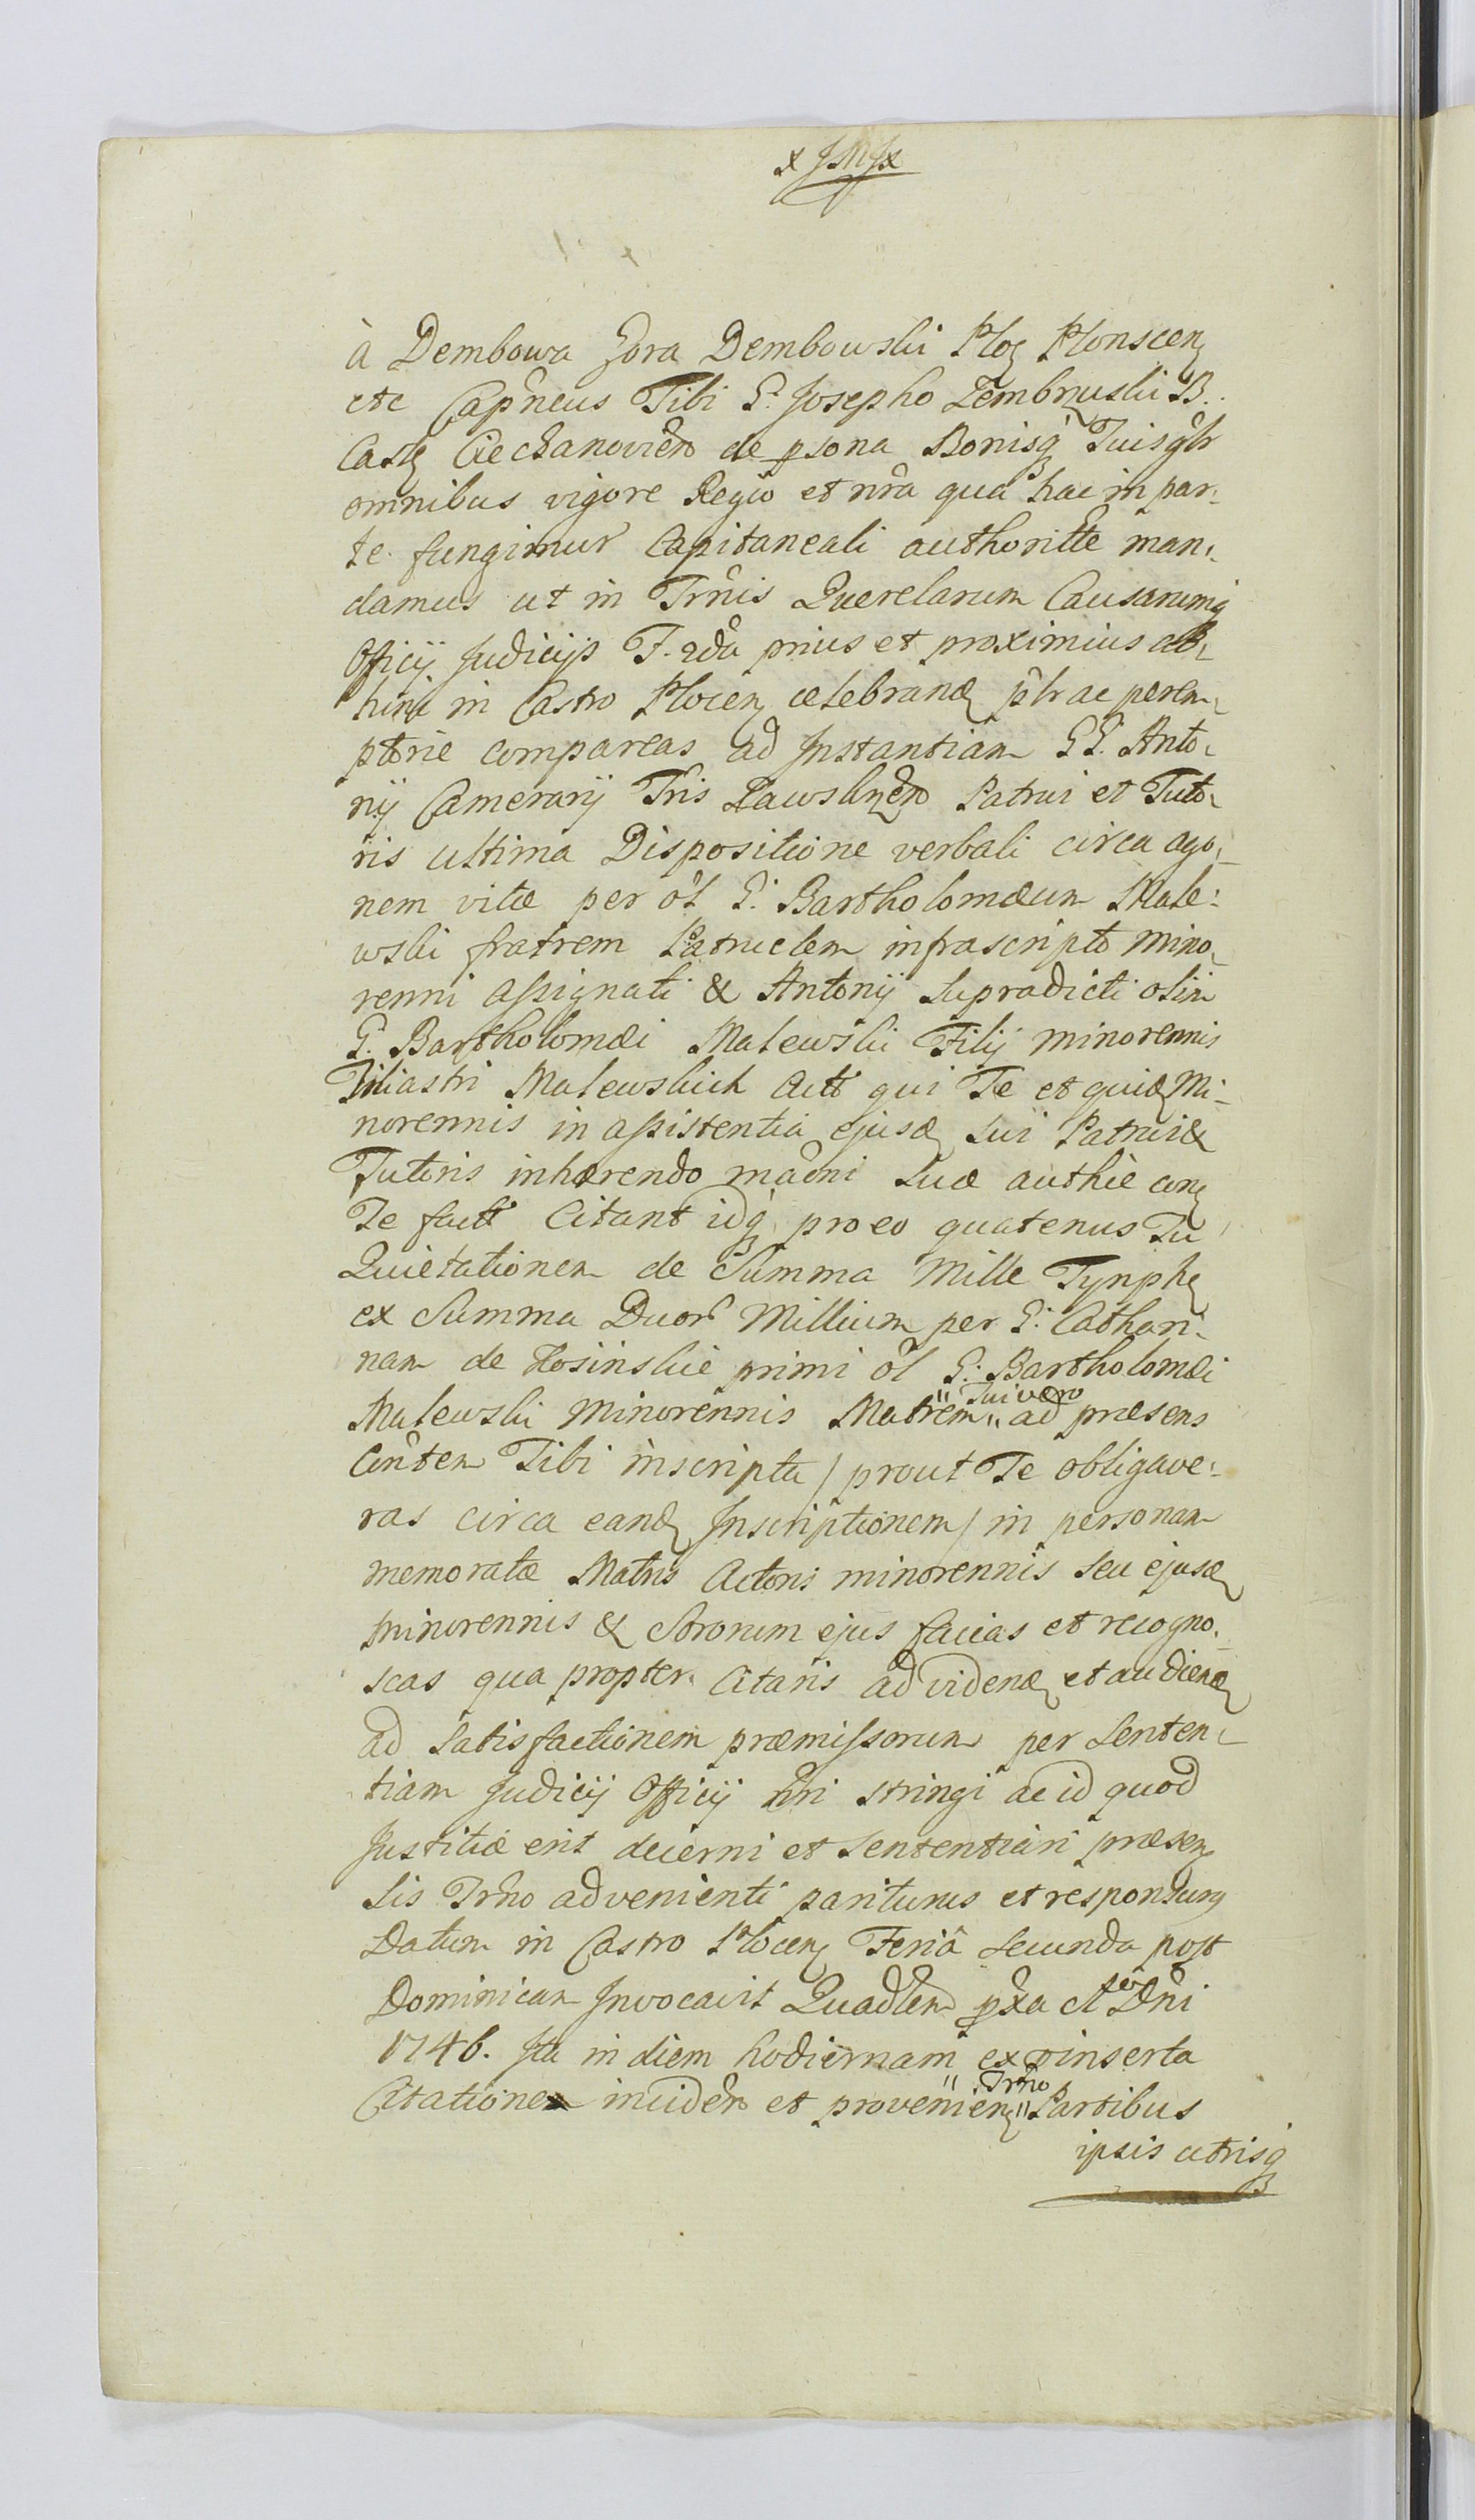 x JMJ x
à Dembowa Gora Dembowski Ploc Plonscen
etc Capneus Tibi G. Josepho Zembrzuski B.
Cast Ciechanovien de psona Bonisq Tuis glr
omnibus vigore Regio et nra qua hac in par-
te fungimur Capitaneali authoritte man-
damus ut in Trnis Querelarum Causarumq
Officij Judicijs F. 2da prius et proximius ab-
hinc in Castro Plocen celebrand plr ac perem-
ptorie compareas ad Instantiam GG. Anto-
nij Camerarij Tris Patrui et Tuto-
ris ultima Dispositione verbali circa ago-
nem vitæ per ol G. Bartholomæum Male-
wski fratrem Patruelem infrascripto mino-
renni assignati & Antonij supradicti olim
G. Bartholomæi Malewski Filij minorennis
Filiastri Malewskich Act qui Te et quid Mi-
norennis in assistentia ejusd sui Patrui &
Tutoris inhærendo mæni suæ authiæ con
Te fact Citant idq pro eo quatenus Tu
Quietationem de Summa Mille Tynph
ex Summa Duor Millium per G. Cathari-
nam de Kosinskie primi ol G. Bartholomæi
Malewski Minorennis Matrem " Tui vero " ad præsens
Conten Tibi inscripta / prout Te obligave-
ras circa eand Inscriptionem / in personam
memoratæ Matris Actoris minorennis seu ejusd
minorennis & Sororum ejus facias et recogno-
scas qua propter Citaris ad vidend et audiend
ad satisfactionem præmissorum per senten-
tiam Judicij Officij nri stringi ac id quod
Justitiæ erit decerni et sententiari præsen
sis Trno advenienti pariturus et responsurus
Datum in Castro Plocen Feriâ secunda post
Dominicam Invocavit Quadlem pxa A Dni
1746. Ita in diem hodiernam ex inserta
Citatione inciden et provenien " Trno " Partibus
ipsis utrisq